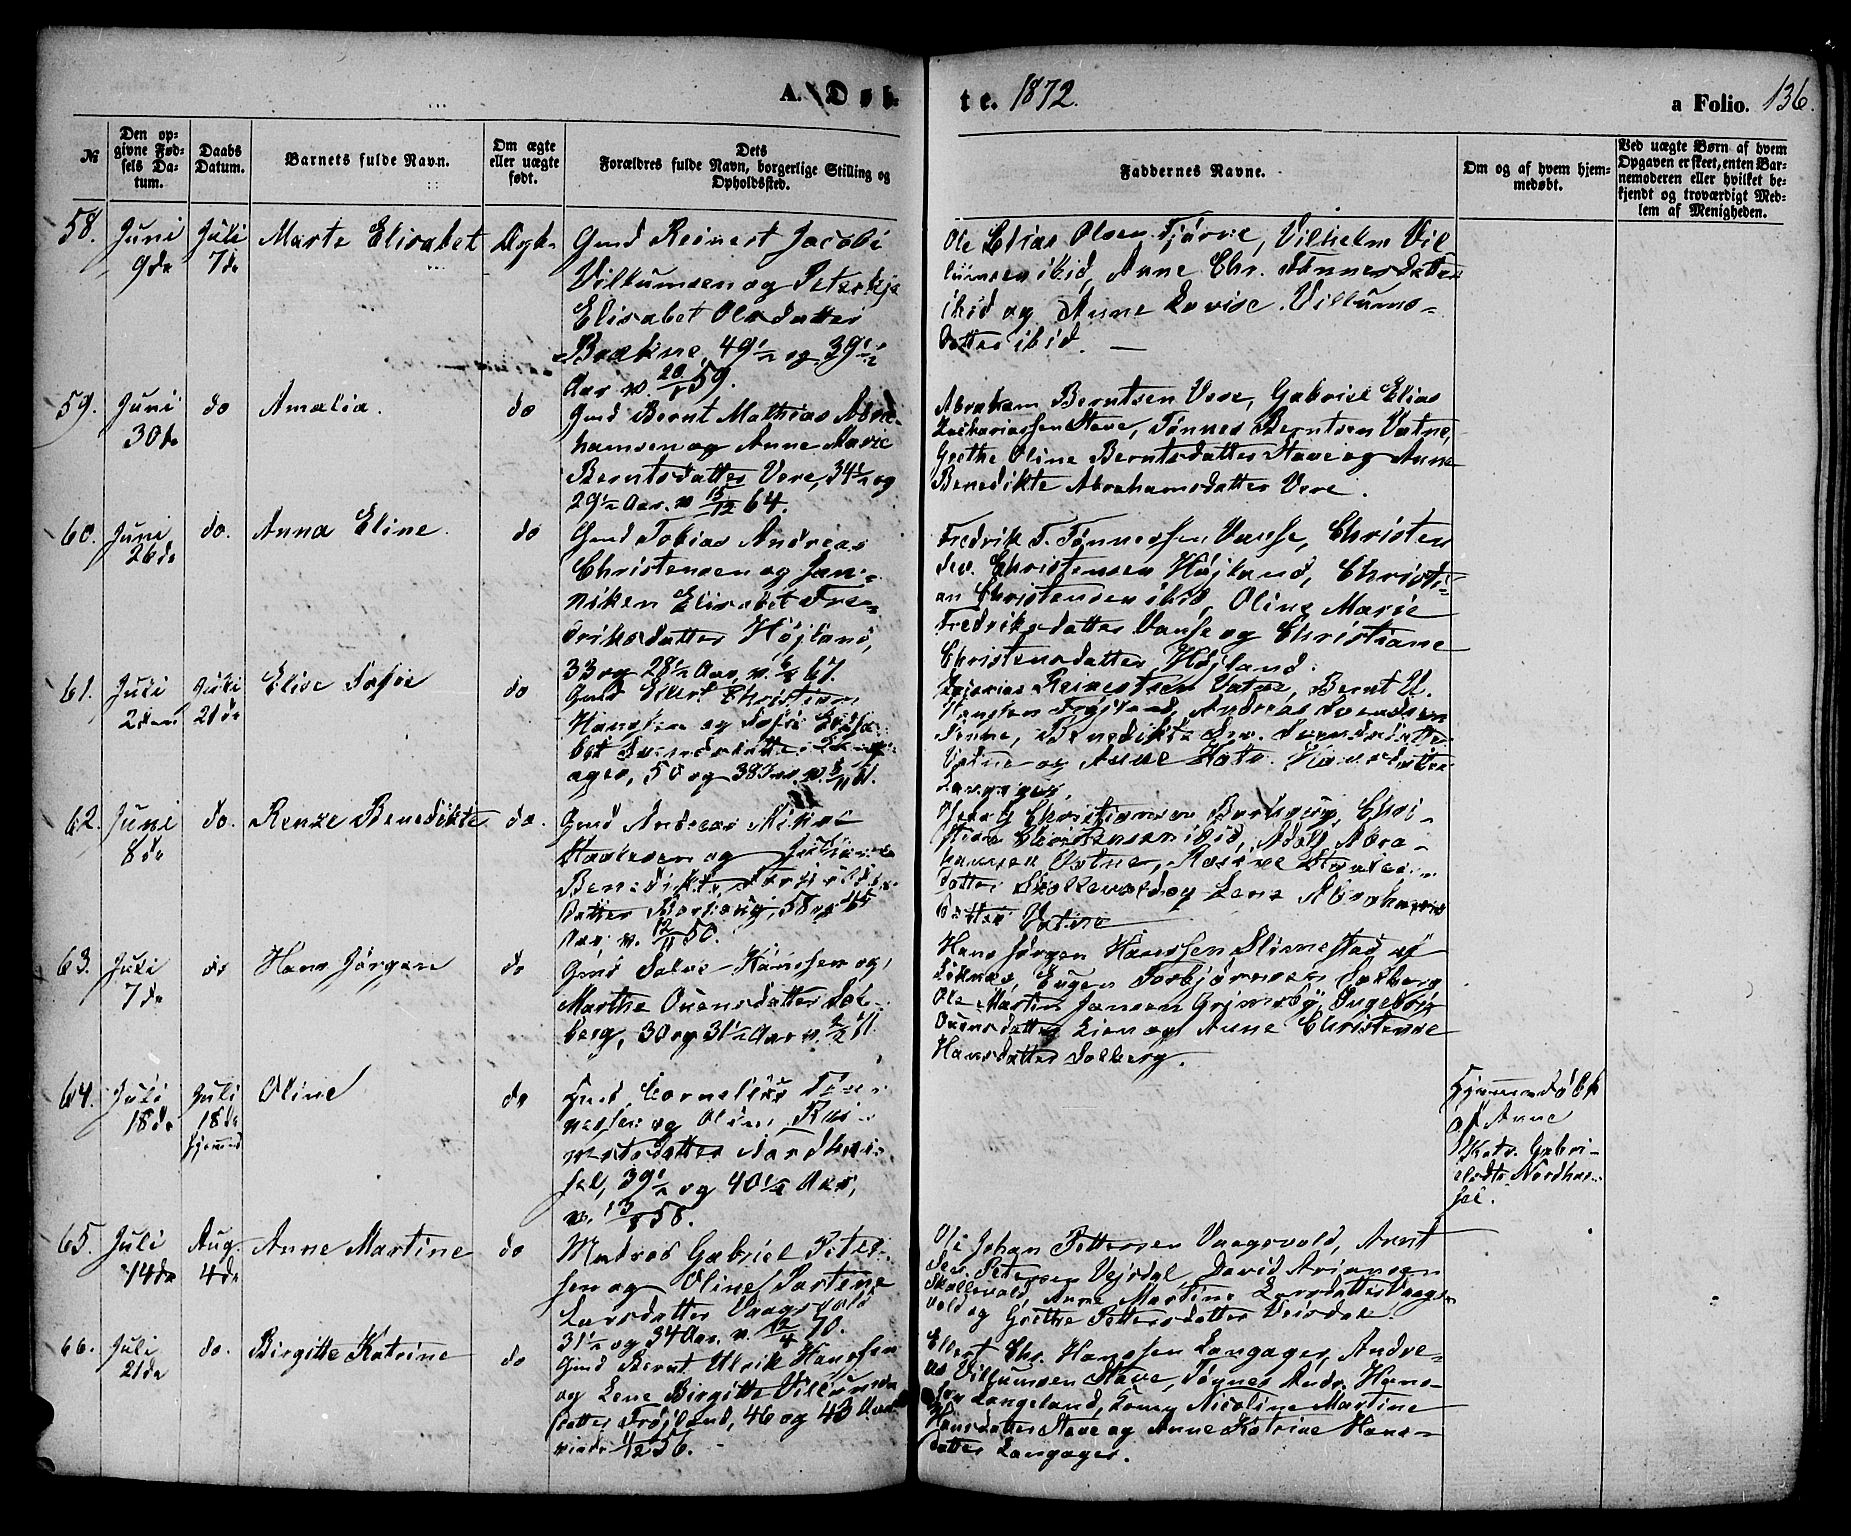 A. Døb-
te. 1872.
a Folio. 136.
№
Den op-
givne Fød-
sels Da-
tum.
Daabs
Datum.
Barnets fulde Navn.
Om ægte
eller uægte
født.
Dets
Forældres fulde Navn, borgerlige Stilling og
Opholdssted.
Faddernes Navne.
Om og af hvem hjem-
medøbt.
Ved uægte Børn af hvem
Opgaven er skeet, enten Bar-
nemoderen eller hvilket be-
kjendt og troværdigt Med-
lem af Menigheden.
58.
Juni
9de
Juli
7de
Marte Elisabet
Ægte
Gmd Reinert Jacobi
Villumsen og
Elisabet Olsdatter
49½ og 39½
Aar v 59.
Ole Elias Olsen Tjørve, Vilhelm Vil-
lumsen ibid, Anne Chr. Tønnesdatter
ibid og Anne Lovise Villums-
datter ibid.
59.
Juni
30de
do
Amalia.
do
Gmd Bernt Mathias Abra-
hamsen og Anne Marie
Berntsdatter Vere, 34½ og
29½ Aar. v 15/12 64.
Abraham Berntsen Vere, Gabriel Elias
Zachariassen Stave, Tønnes Berntsen Vatne,
Grethe Oline Berntsdatter Stave og Anne
Benedikte Abrahamsdatter Vere.
60.
Juni
26de
do.
Anna Eline.
do
Gmd Tobias Andreas
Christensen og Jan-
niken Elisabet Fre-
driksdatter Højland,
33 og 28½ Aar, v. 67.
Fredrik T. Tønnessen Vanse, Christen
dev. Christensen Højland, Christi-
an Christensen ibid, Oline Marie
Fredriksdatter Vanse og Christiane
Christensdatter Højland.
61.
Juli
2den
Juli
21de
Elise Sofie
do
Gmd Eilert Christian
Hanssen og Sofie Elisa-
bet Svendsdatter Lang-
ager, 50 og 38 Aar. v.
Reinertsen Vatne, Bernt U.
Hanssen Frøjland, Andreas Svendsen
Benedikte Svendsdatter
Vatne og Anne Katr. Hansdatter
Langager.
62.
Juni
8de
do.
Renze Benedikte
do.
Gmd Andreas Mikal
og
Benedikte
datter Borhaug, 58 og 45
Aar v. 12/11 50.
Christiansen Borhaug, Chri-
stian Christensen ibid, Adolf Abra-
hamsen Vatne, Rasine
datter Skollevold og Lene Abrahams-
datter Vatne
63.
Juli
7de
do
Hans Jørgen
do
Gmd Salve Hanssen og
Marthe Ouensdatter Sol-
berg, 30 og 31½ Aar v.
Hans Jørgen Hanssen Slimestad af
Liknes, Eugen Torbjørnsen Solberg
Ole Martin Jansen Grimsby, Ingebrig
Ouensdatter Lien og Anne Christense
Hansdatter Solberg.
64.
Juli
18de
Juli
18de
hjemmed
Oline
do
Gmd Cornelius Tøn-
nessen og Oline Rei-
nertsdatter Nordhas-
sel, 39½ og 40½ Aar,
v. 13/8 58.
Hjemmedøbt
af Anne
Katr. Gabri-
elsdtr Nordhas-
sel.
65.
Juli
14de
Aug.
4de
Anne Martine
do
Matros Gabriel Peter-
sen og Oline Sartine
Larsdatter Vaagsvold
31½ og 34 Aar. v. 12/4 70.
Ole Johan Pettersen Vaagsvold, Arnt
Sev. Petersen Vejsdal, David Ariansen
Skollevold, Anne Martine Larsdatter Vaags-
vold og Grethe Pettersdatter Veisdal.
66.
Juli
21de
do.
Birgitte Katrine
do
Gmd Bernt Ulrik Hanssen
og Lene Birgitte Villums-
datter Frøjland, 46 og 43 Aar
viede 56.
Eilert Chr. Hanssen Langager, Andre-
as Villumsen Stave, Tønnes Andr. Hans-
sen Langeland, Nicoline Martine
Hansdatter Stave og Anne Katrine Hans-
datter Langager.